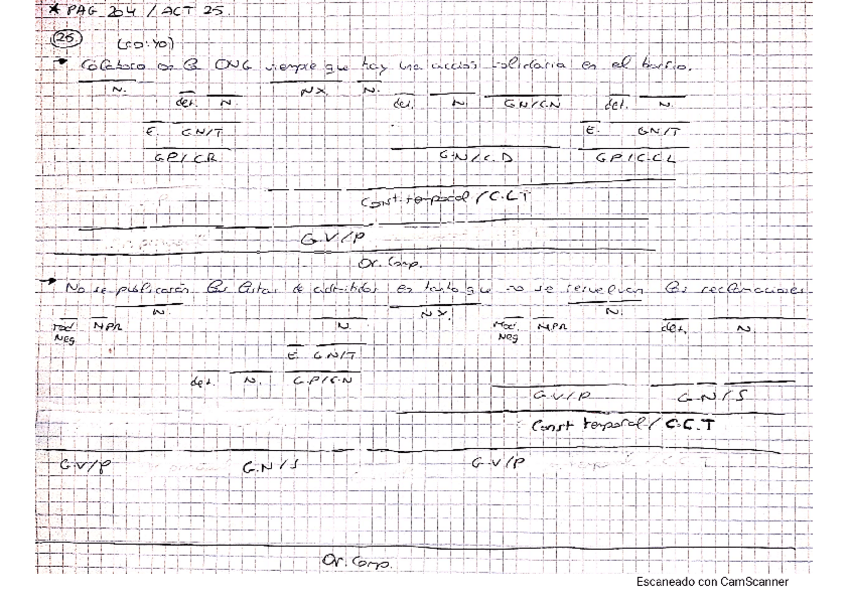 * PAG 204 / ACT 25.
25 (CO: YO)
→ Colaboro con la ONG siempre que hay una acción solidaria en el barrio.
N. det. N. NX N. det. N. GN/C.N det. N.
E. GN/T E. GN/T
GP/CR G.N/C.D GP/C.CL
Const. temporal / C.C.T
G.V/P
Or. Comp.
→ No se publicarán las listas de admitidos en tanto que no se resuelvan las reclamaciones.
N. NX. N.
mod. Neg NPR N. mod. Neg NPR det. N.
E. GN/T
det. N. G.P/C.N
G.V/P G.N/S
Const temporal / C.C.T
G.V/P G.N/S G.V/P
Or. Comp.
Escaneado con CamScanner